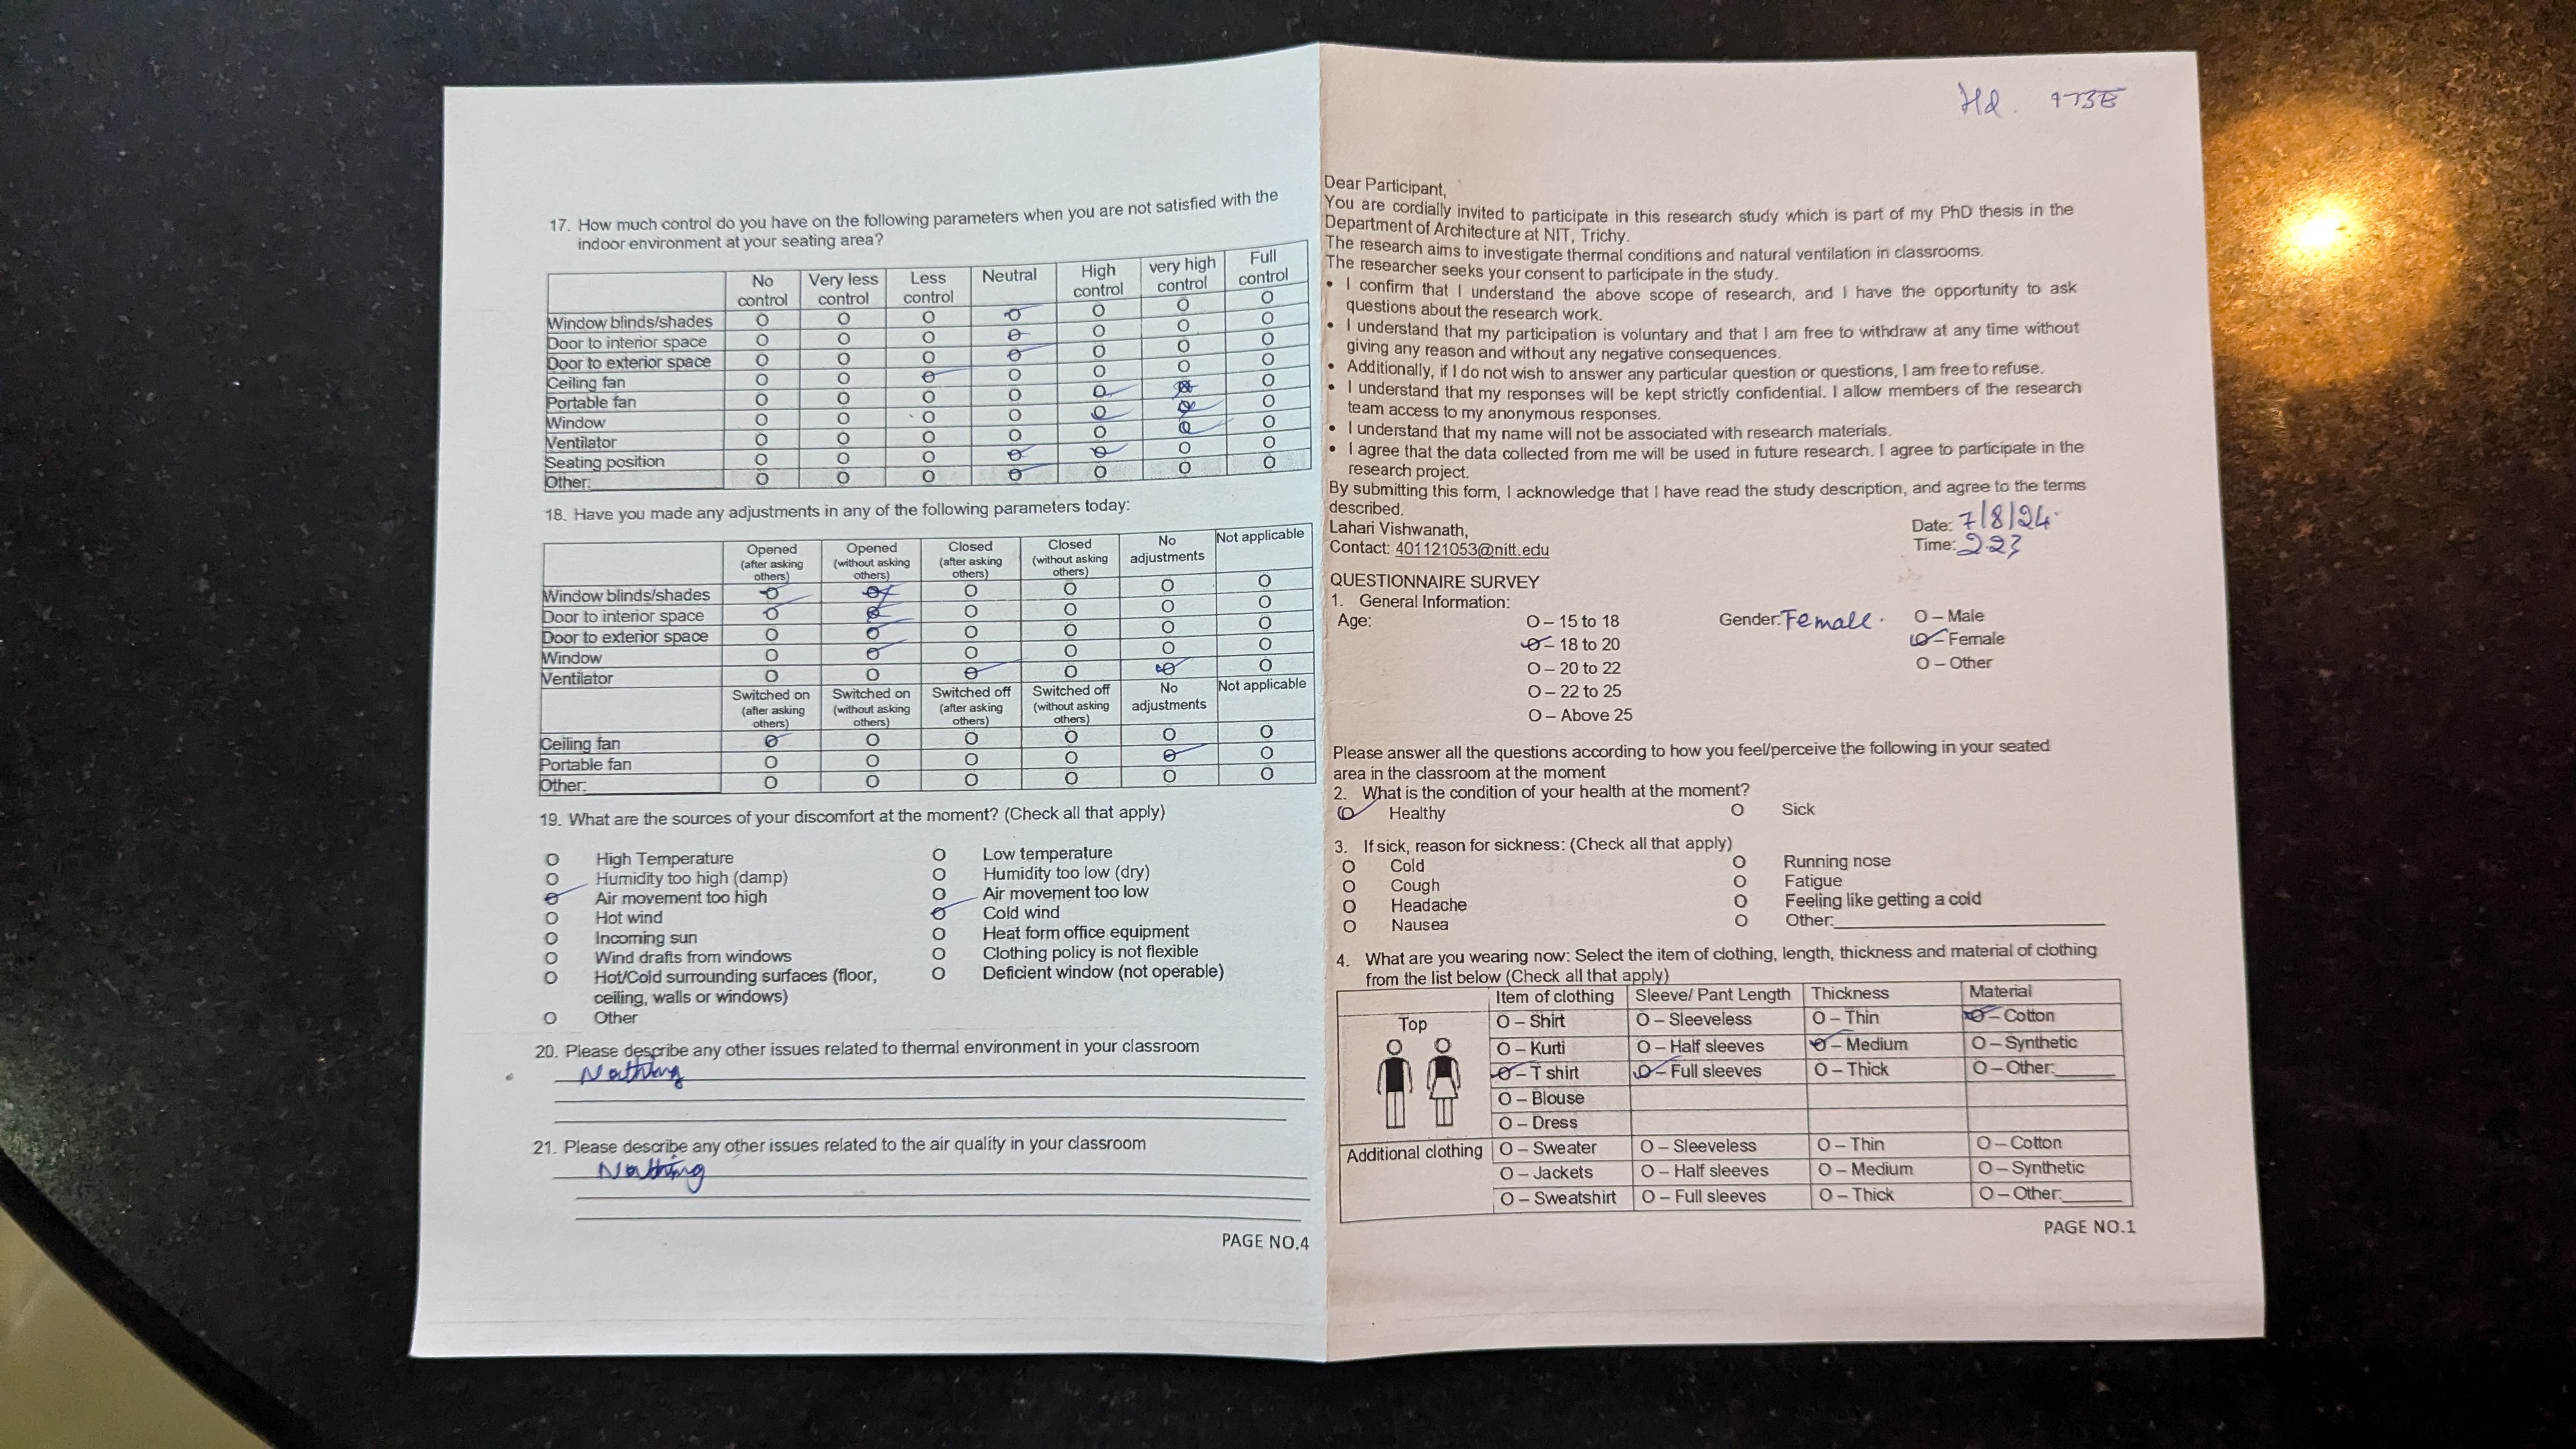 17. How much control do you have on the following parameters when you are not satisfied with the
indoor environment at your seating area?
No control Very less control Less control Neutral High control very high control Full control
Window blinds/shades O O O O O O O
Door to interior space O O O O O O O
Door to exterior space O O O O O O O
Ceiling fan O O O O O O O
Portable fan O O O O O O O
Window O O O O O O O
Ventilator O O O O O O O
Seating position O O O O O O O
Other: O O O O O O O
18. Have you made any adjustments in any of the following parameters today:
Opened (after asking others) Opened (without asking others) Closed (after asking others) Closed (without asking others) No adjustments Not applicable
Window blinds/shades O O O O O O
Door to interior space O O O O O O
Door to exterior space O O O O O O
Window O O O O O O
Ventilator O O O O O O
Switched on (after asking others) Switched on (without asking others) Switched off (after asking others) Switched off (without asking others) No adjustments Not applicable
Ceiling fan O O O O O O
Portable fan O O O O O O
Other: O O O O O O
19. What are the sources of your discomfort at the moment? (Check all that apply)
O High Temperature O Low temperature
O Humidity too high (damp) O Humidity too low (dry)
O Air movement too high O Air movement too low
O Hot wind O Cold wind
O Incoming sun O Heat form office equipment
O Wind drafts from windows O Clothing policy is not flexible
O Hot/Cold surrounding surfaces (floor, O Deficient window (not operable)
ceiling, walls or windows)
O Other
20. Please describe any other issues related to thermal environment in your classroom
Nothing
21. Please describe any other issues related to the air quality in your classroom
Nothing
PAGE NO.4
Dear Participant,
You are cordially invited to participate in this research study which is part of my PhD thesis in the
Department of Architecture at NIT, Trichy.
The research aims to investigate thermal conditions and natural ventilation in classrooms.
The researcher seeks your consent to participate in the study.
• I confirm that I understand the above scope of research, and I have the opportunity to ask
questions about the research work.
• I understand that my participation is voluntary and that I am free to withdraw at any time without
giving any reason and without any negative consequences.
• Additionally, if I do not wish to answer any particular question or questions, I am free to refuse.
• I understand that my responses will be kept strictly confidential. I allow members of the research
team access to my anonymous responses.
• I understand that my name will not be associated with research materials.
• I agree that the data collected from me will be used in future research. I agree to participate in the
research project.
By submitting this form, I acknowledge that I have read the study description, and agree to the terms
described.
Lahari Vishwanath, Date: 7/8/24
Contact: 401121053@nitt.edu Time: 2.23
QUESTIONNAIRE SURVEY
1. General Information:
Age: O – 15 to 18 Gender: Female. O – Male
O – 18 to 20 O – Female
O – 20 to 22 O – Other
O – 22 to 25
O – Above 25
Please answer all the questions according to how you feel/perceive the following in your seated
area in the classroom at the moment
2. What is the condition of your health at the moment?
O Healthy O Sick
3. If sick, reason for sickness: (Check all that apply)
O Cold O Running nose
O Cough O Fatigue
O Headache O Feeling like getting a cold
O Nausea O Other:
4. What are you wearing now: Select the item of clothing, length, thickness and material of clothing
from the list below (Check all that apply)
Item of clothing Sleeve/ Pant Length Thickness Material
Top O – Shirt O – Sleeveless O – Thin O – Cotton
O – Kurti O – Half sleeves O – Medium O – Synthetic
O – T shirt O – Full sleeves O – Thick O – Other:
O – Blouse
O – Dress
Additional clothing O – Sweater O – Sleeveless O – Thin O – Cotton
O – Jackets O – Half sleeves O – Medium O – Synthetic
O – Sweatshirt O – Full sleeves O – Thick O – Other:
PAGE NO.1